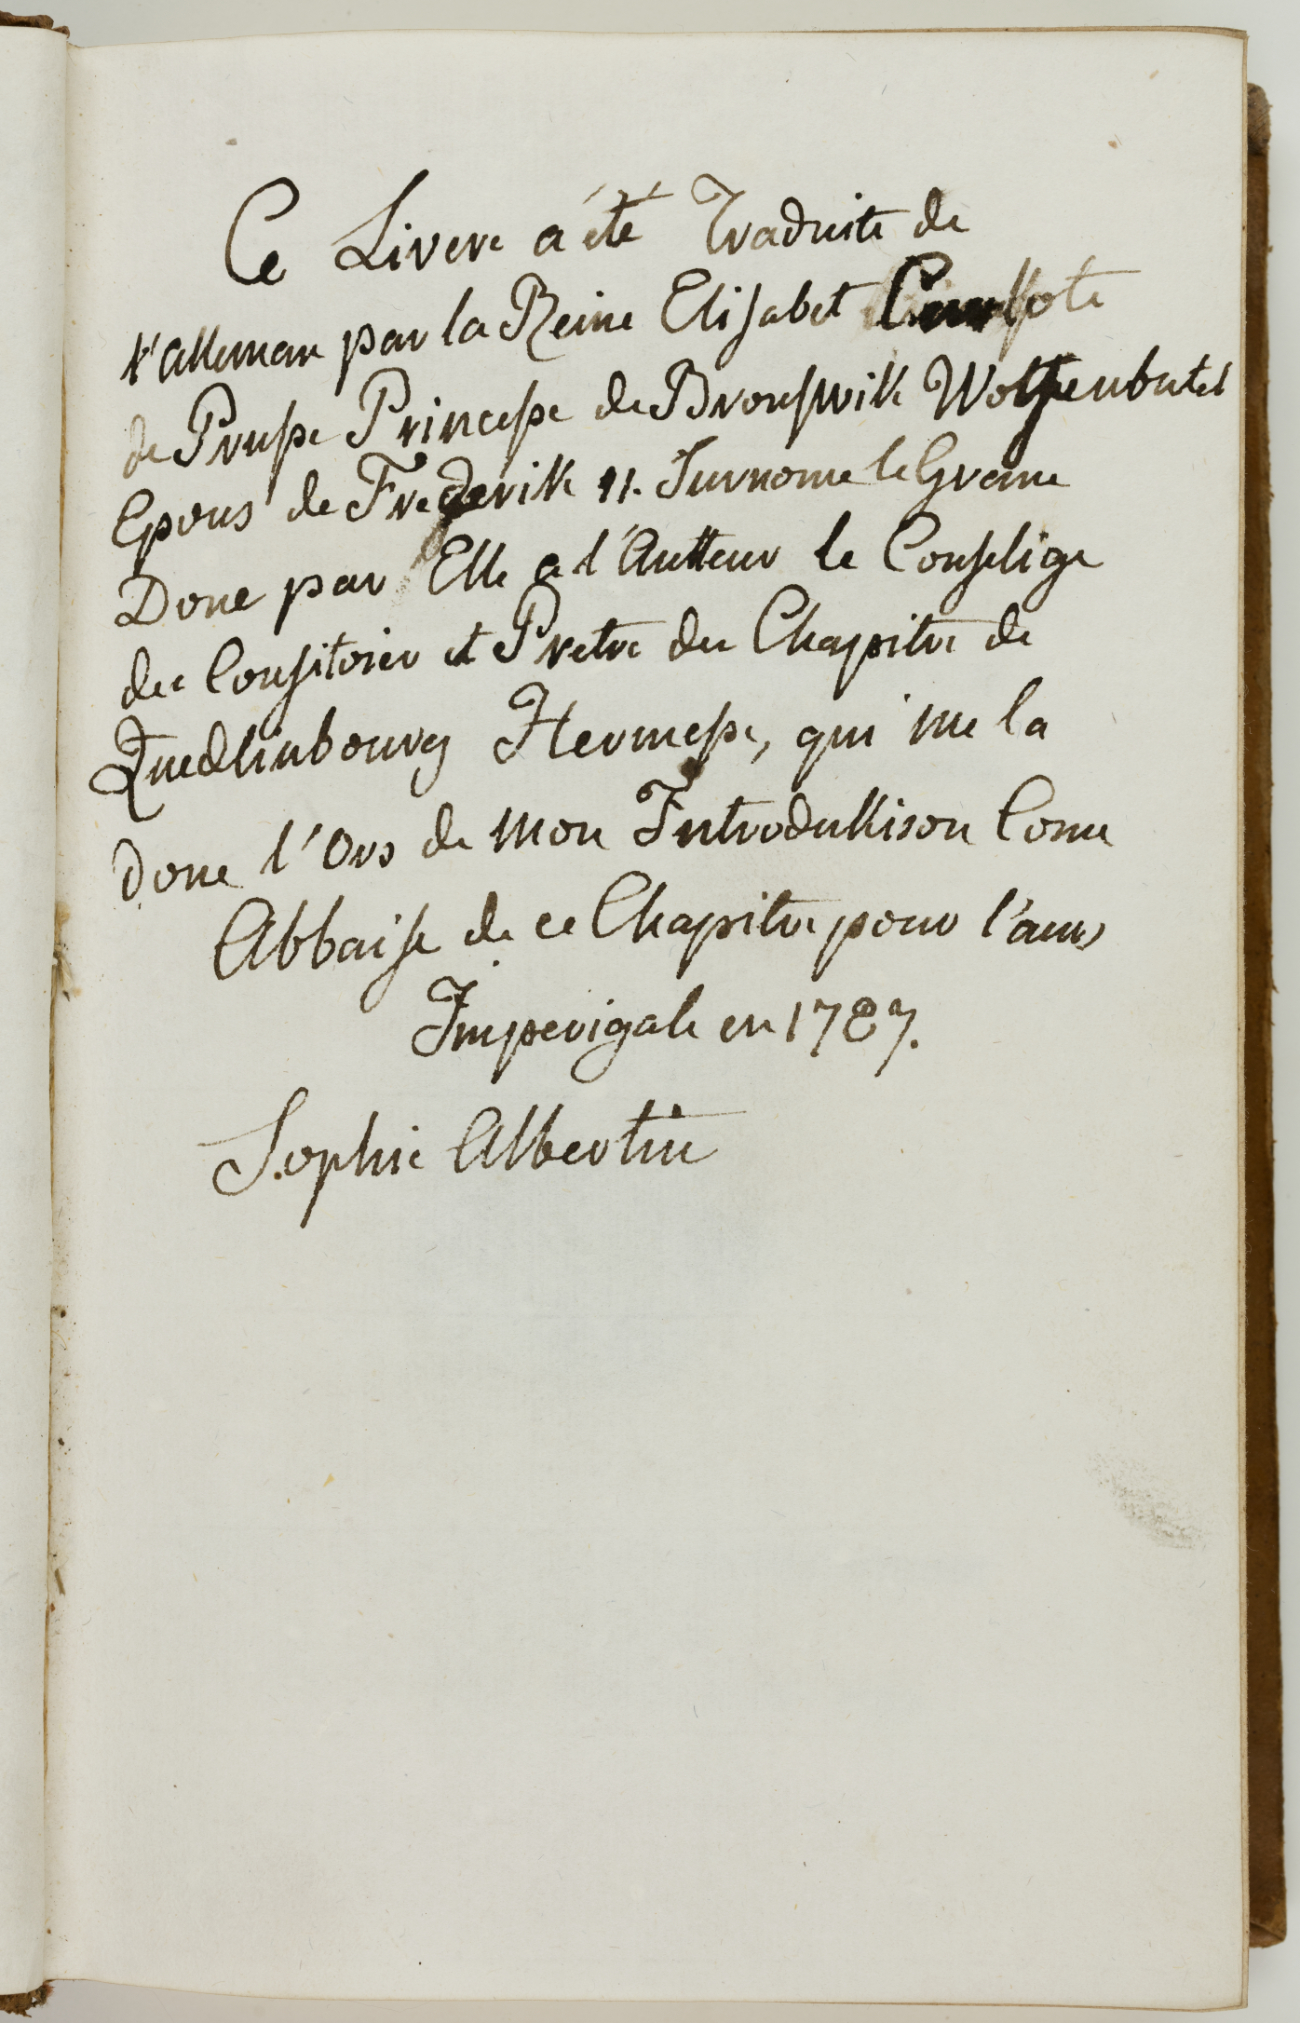 Ce Livere a été Traduite de
l'alleman par la Reine Elisabet
de Prusse Princesse de Brouswik Wolfenbutel
Epous de Frederik II. Surnome le Grane
Done par Elle a l'Autteur le Conseliger
du Consitoier et Pretre du Chapitre de
Quedlinbourg Hermesse, qui me la
done l'Ors de mon Introdukison Come
Abbaise de ce Chapitre pour l'anes
Imperigale en 1787.
Sophie Albertin